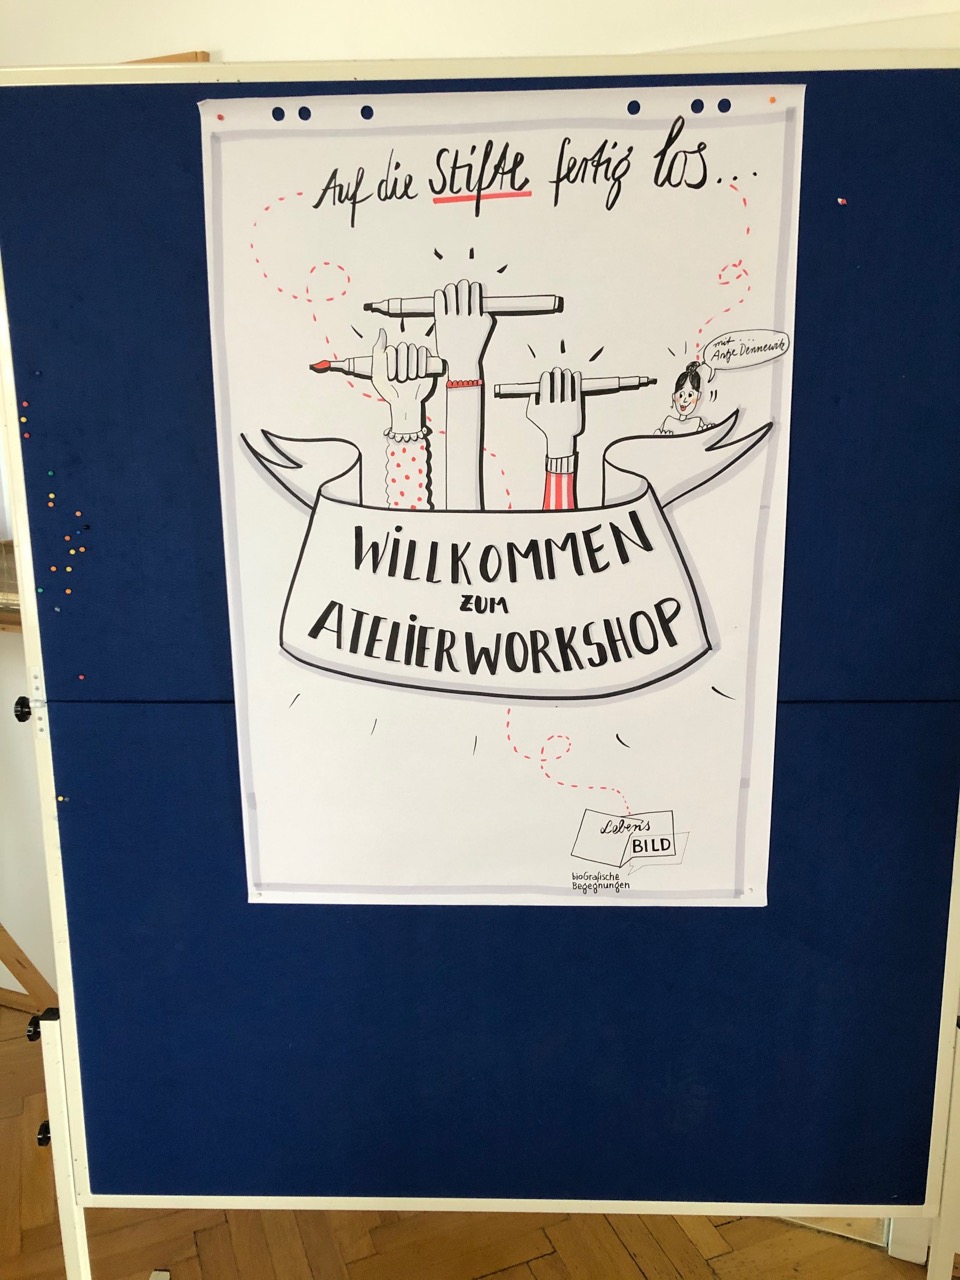 Auf die Stifte fertig los...
mit...
Antje Dennewitz
WiLLKOMMEN
ZUM
ATELiERWORKSHOP
Lebens
BILD
bioGrafische
Begegnungen